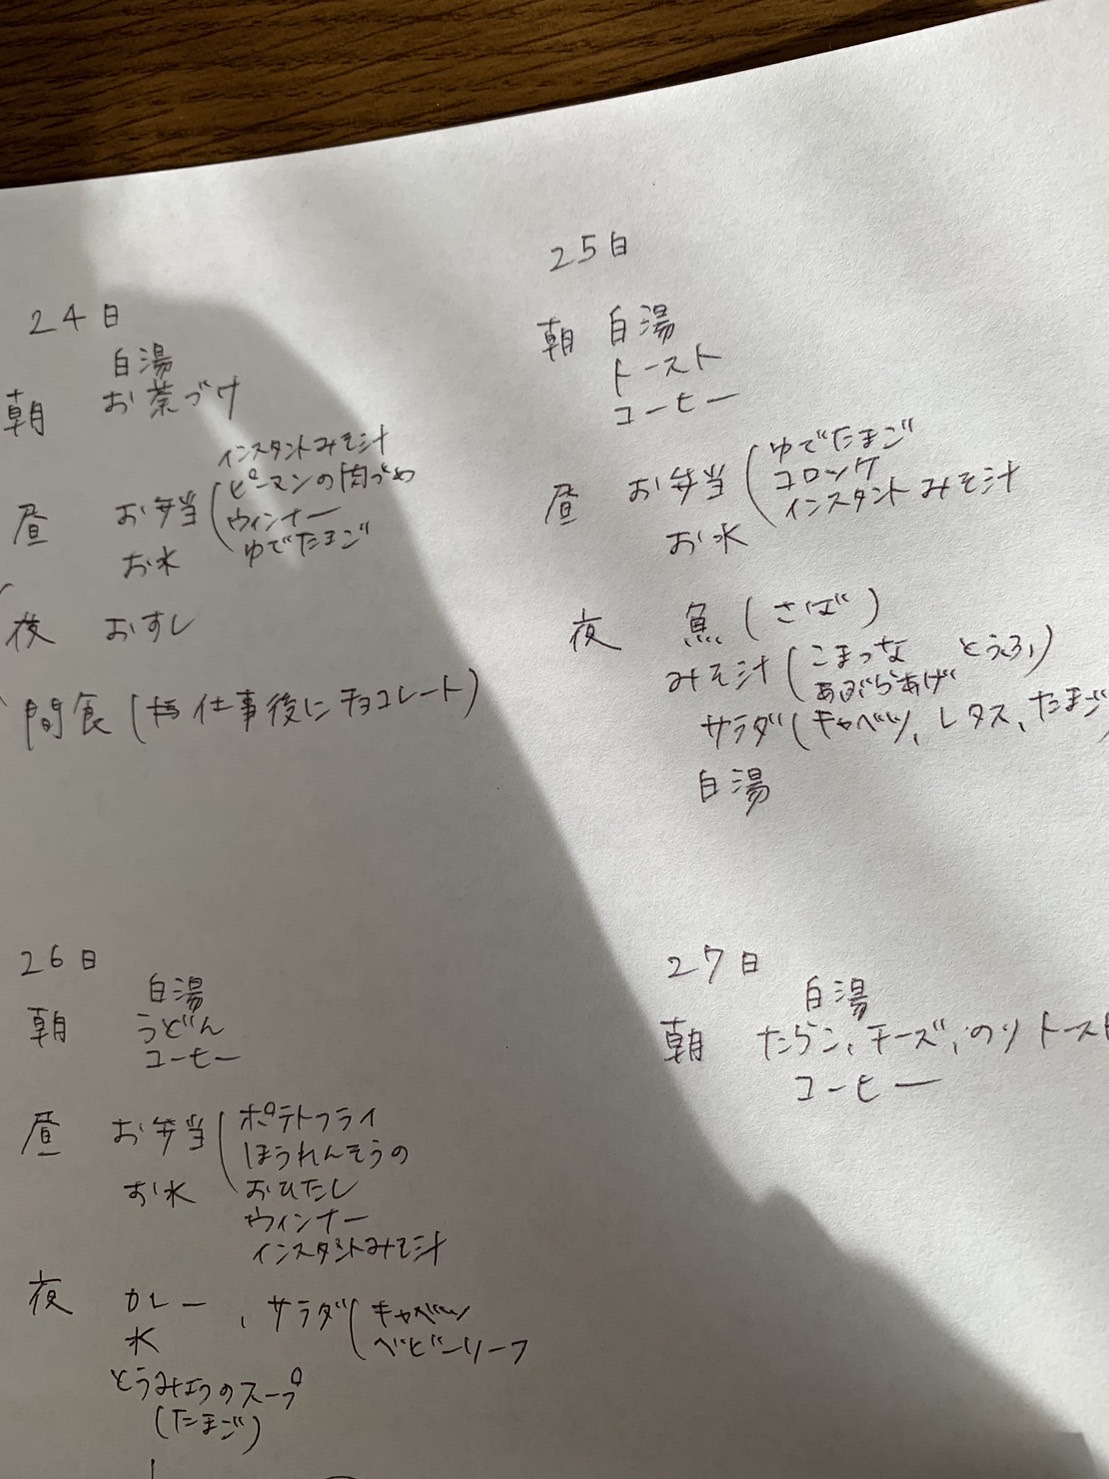 24日
白湯
朝 お茶づけ
インスタントみそ汁
昼 お弁当(ピーマンの肉づめ
ウィンナー
お水 ゆでたまご
夜 おすし
間食(仕事後にチョコレート)
25日
朝 白湯
トースト
コーヒー
昼 お弁当(ゆでたまご
コロッケ
インスタントみそ汁
お水
夜 魚(さば)
みそ汁(こまつな とうふ)
あぶらあげ
サラダ(キャベツ、レタス、たまご
白湯
26日
白湯
朝 うどん
コーヒー
昼 お弁当(ポテトフライ
ほうれんそうの
お水 おひたし
ウィンナー
インスタントみそ汁
夜 カレー、サラダ(キャベツ
水 ベビーリーフ
とうみょうのスープ
(たまご)
27日
白湯
朝 たらこ、チーズ、のりトースト
コーヒー